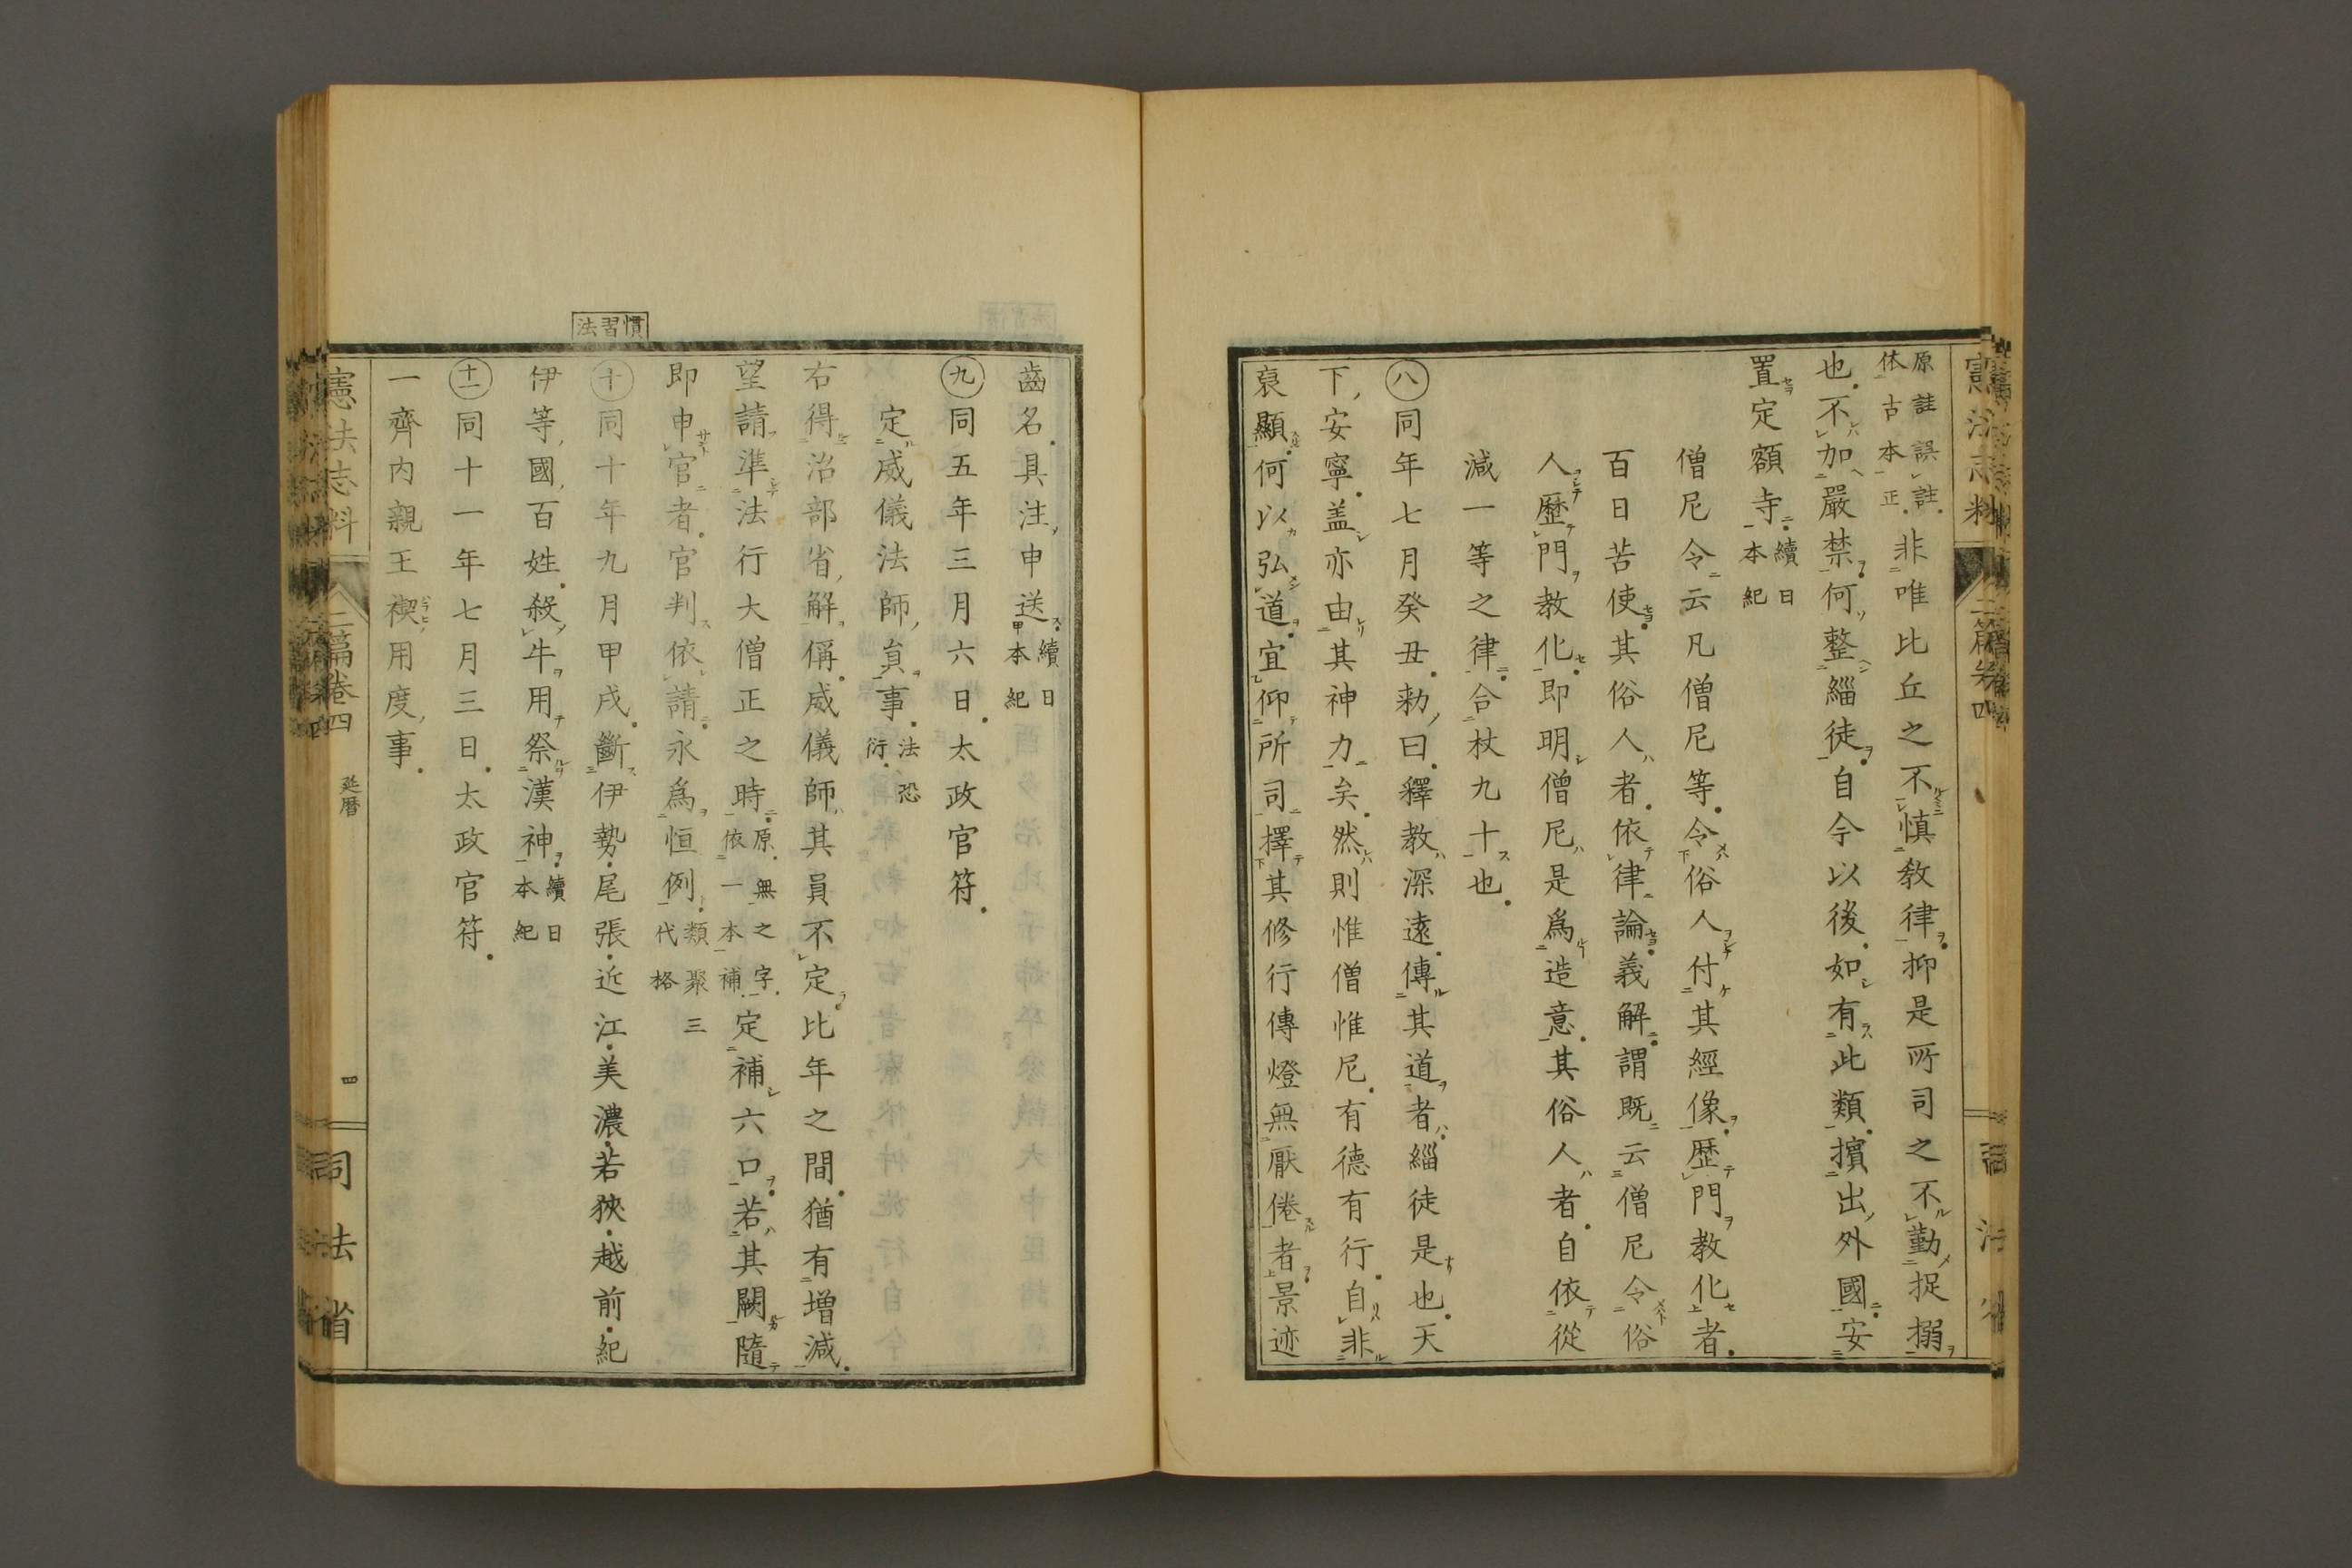 原註誤註
依古本正
非唯比丘之不慎教律抑是所司之不勤捉搦
也不加嚴禁何整緇徒自今以後如有此類擯出外國安
置定額寺
續日
本紀
僧尼令云凡僧尼等令俗人付其經像歴門教化者
百日苦使其俗人者依律論義解謂既云僧尼令俗
人歴門教化即明僧尼是爲造意其俗人者自依從
減一等之律合杖九十也
㊇同年七月癸丑勅曰釋教深遠傳其道者緇徒是也天
下安寧盖亦由其神力矣然則惟僧惟尼有德有行自非
裒顯何以弘道宜仰所司擇其修行傳燈無厭倦者景迹
齒名具注申送
續日
本紀
㊈同五年三月六日太政官符
定威儀法師員事
法恐
衍
右得治部省解偁威儀師其員不定比年之間猶有増減
望請準法行大僧正之時
原無之字
依一本補
定補六口若其闕隨
即申官者官判依請永爲恒例
類聚三
代格
慣習法
㊉同十年九月甲戌斷伊勢尾張近江美濃若狹越前紀
伊等國百姓殺牛用祭漢神
續日
本紀
⑪同十一年七月三日太政官符
一齊内親王禊用度事
憲法志料
二篇卷四
延暦
四
司法省